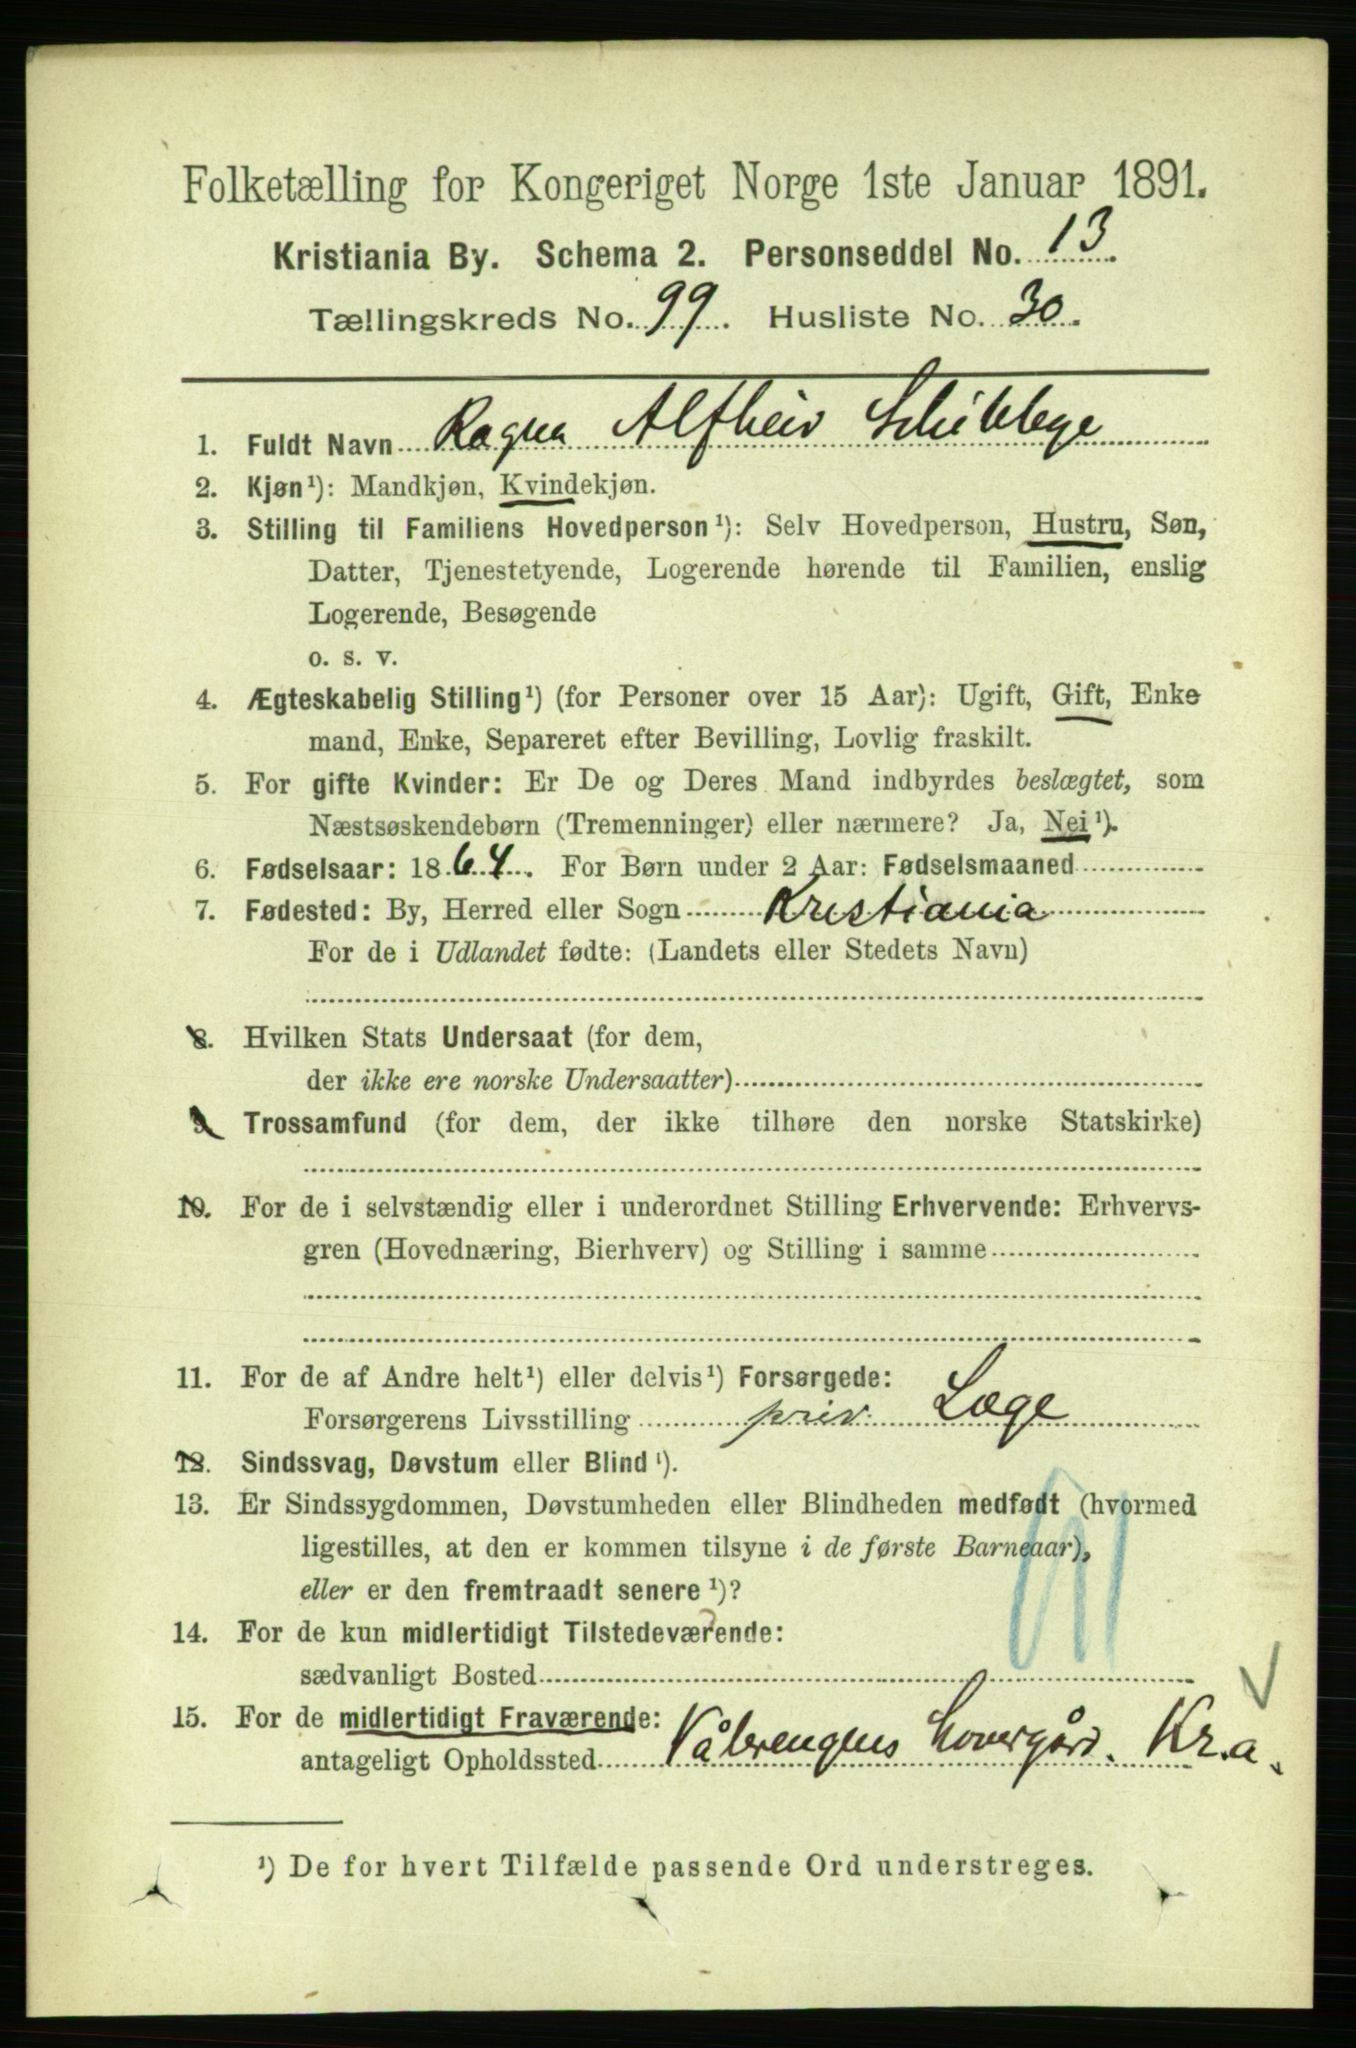 Folketælling for Kongeriget Norge 1ste Januar 1891.
Kristiania By. Schema 2. Personseddel No. 13.
Tællingskreds No. 99. Husliste No. 30.
1. Fuldt Navn Ragna Alfheid
2. Kjøn¹): Mandkjøn, Kvindekjøn.
3. Stilling til Familiens Hovedperson¹): Selv Hovedperson, Hustru, Søn,
Datter, Tjenestetyende, Logerende hørende til Familien, enslig
Logerende, Besøgende
o. s. v.
4. Ægteskabelig Stilling¹) (for Personer over 15 Aar): Ugift, Gift, Enke
mand, Enke, Separeret efter Bevilling, Lovlig fraskilt.
5. For gifte Kvinder: Er De og Deres Mand indbyrdes beslægtet, som
Næstsøskendebørn (Tremenninger) eller nærmere? Ja, Nei¹).
6. Fødselsaar: 1864. For Børn under 2 Aar: Fødselsmaaned
7. Fødested: By, Herred eller Sogn Kristiania
For de i Udlandet fødte: (Landets eller Stedets Navn)
8. Hvilken Stats Undersaat (for dem,
der ikke ere norske Undersaatter)
9. Trossamfund (for dem, der ikke tilhøre den norske Statskirke)
10. For de i selvstændig eller i underordnet Stilling Erhvervende: Erhvervs-
gren (Hovednæring, Bierhverv) og Stilling i samme
11. For de af Andre helt¹) eller delvis¹) Forsørgede:
Forsørgerens Livsstilling priv. Læge
12. Sindssvag, Døvstum eller Blind¹).
13. Er Sindssygdommen, Døvstumheden eller Blindheden medfødt (hvormed
ligestilles, at den er kommen tilsyne i de første Barneaar),
eller er den fremtraadt senere¹)?
14. For de kun midlertidigt Tilstedeværende:
sædvanligt Bosted
15. For de midlertidigt Fraværende:
antageligt Opholdssted Vålerengens Hovergård. Kr.a.
¹) De for hvert Tilfælde passende Ord understreges.